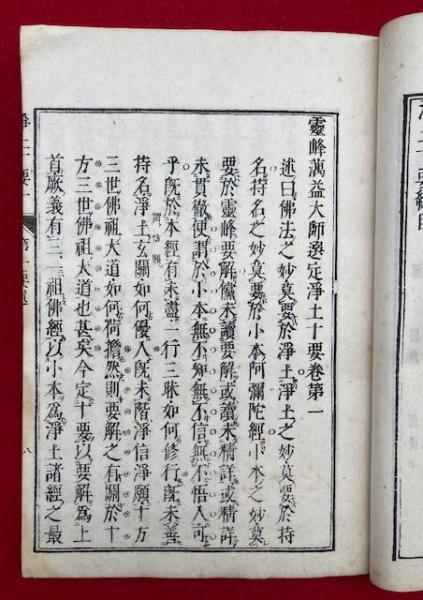 靈峰蕅益大師選定淨土十要卷第一
述曰佛法之妙莫要於淨土淨土之妙莫要於持
名持名之妙莫要於小本阿彌陀經小本之妙莫
要於靈峰要解儻未讀要解或讀未精詳或精詳
未貫徹便謂於小本無不知無不信無不悟人可
乎旣於本經有未盡一行三昧如何修行旣未善
謂信願
持名淨土玄關如何優入旣未階淨信淨願十方
三世佛祖大道如何荷擔然則要解之有關於十
方三世佛祖大道也甚矣今定十要以要解爲上
首厥義有三一祖佛經以小本爲淨土諸經之最
八